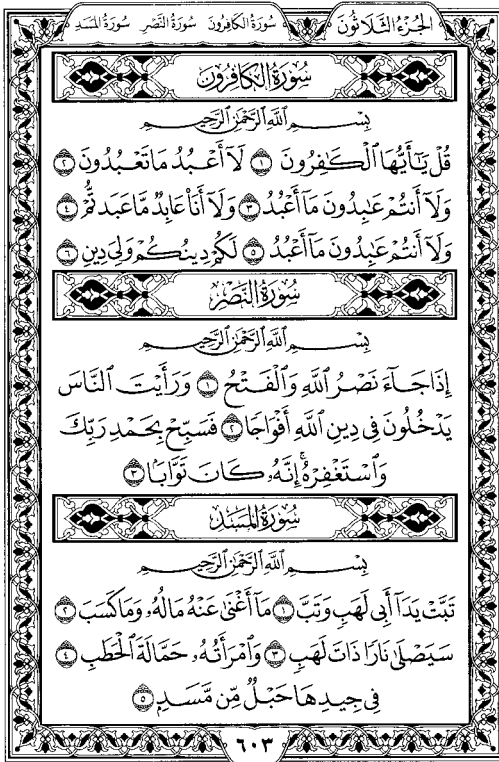 الجزء الثلاثون سورة الكافرون سورة النصر سورة المسد
سُورَةُ الكَافِرُون
بِسْمِ اللَّهِ الرَّحْمَٰنِ الرَّحِيمِ
قُلْ يَٰٓأَيُّهَا ٱلْكَٰفِرُونَ ١ لَآ أَعْبُدُ مَا تَعْبُدُونَ ٢
وَلَآ أَنتُمْ عَٰبِدُونَ مَآ أَعْبُدُ ٣ وَلَآ أَنَا۠ عَابِدٌ مَّا عَبَدتُّمْ ٤
وَلَآ أَنتُمْ عَٰبِدُونَ مَآ أَعْبُدُ ٥ لَكُمْ دِينُكُمْ وَلِىَ دِينِ ٦
سُورَةُ النَّصْر
بِسْمِ اللَّهِ الرَّحْمَٰنِ الرَّحِيمِ
إِذَا جَآءَ نَصْرُ ٱللَّهِ وَٱلْفَتْحُ ١ وَرَأَيْتَ ٱلنَّاسَ
يَدْخُلُونَ فِى دِينِ ٱللَّهِ أَفْوَاجًا ٢ فَسَبِّحْ بِحَمْدِ رَبِّكَ
وَٱسْتَغْفِرْهُ ۚ إِنَّهُۥ كَانَ تَوَّابًۢا ٣
سُورَةُ المَسَد
بِسْمِ اللَّهِ الرَّحْمَٰنِ الرَّحِيمِ
تَبَّتْ يَدَآ أَبِى لَهَبٍ وَتَبَّ ١ مَآ أَغْنَىٰ عَنْهُ مَالُهُۥ وَمَا كَسَبَ ٢
سَيَصْلَىٰ نَارًا ذَاتَ لَهَبٍ ٣ وَٱمْرَأَتُهُۥ حَمَّالَةَ ٱلْحَطَبِ ٤
فِى جِيدِهَا حَبْلٌ مِّن مَّسَدٍۭ ٥
٦٠٣